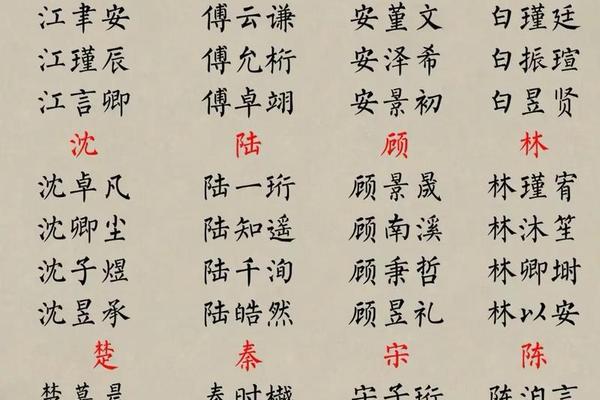 江聿安 傅云谦 安堇文 白瑾廷
江瑾辰 傅允桁 安泽希 白振瑄
江言卿 傅卓翊 安景初 白昱贤
沈 陆 顾 林
沈卓凡 陆一珩 顾景晟 林瑾宥
沈卿尘 陆知遥 顾南溪 林沐笙
沈子煜 陆千洵 顾秉哲 林卿埘
沈昱承 陆皓然 顾昱礼 林以安
楚 秦 宋 陈
宋子珩 陈泊言